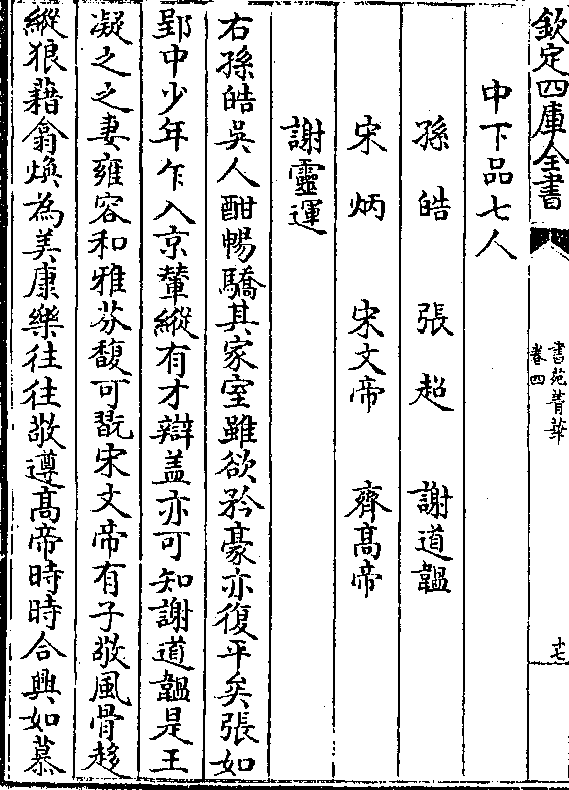 欽定四庫全書
書苑菁華
卷四
十七
中下品七人
孫皓　張超　謝道韞
宋炳　宋文帝　齊髙帝
謝靈運
右孫皓吳人酣暢驕其家室雖欲矜豪亦復平矣張如
郢中少年乍入京輦縱有才辯盖亦可知謝道韞是王
凝之之妻雍容和雅芬馥可翫宋文帝有子敬風骨趍
縱狼藉翕煥為美康樂往往敬遵髙帝時時合興如慕